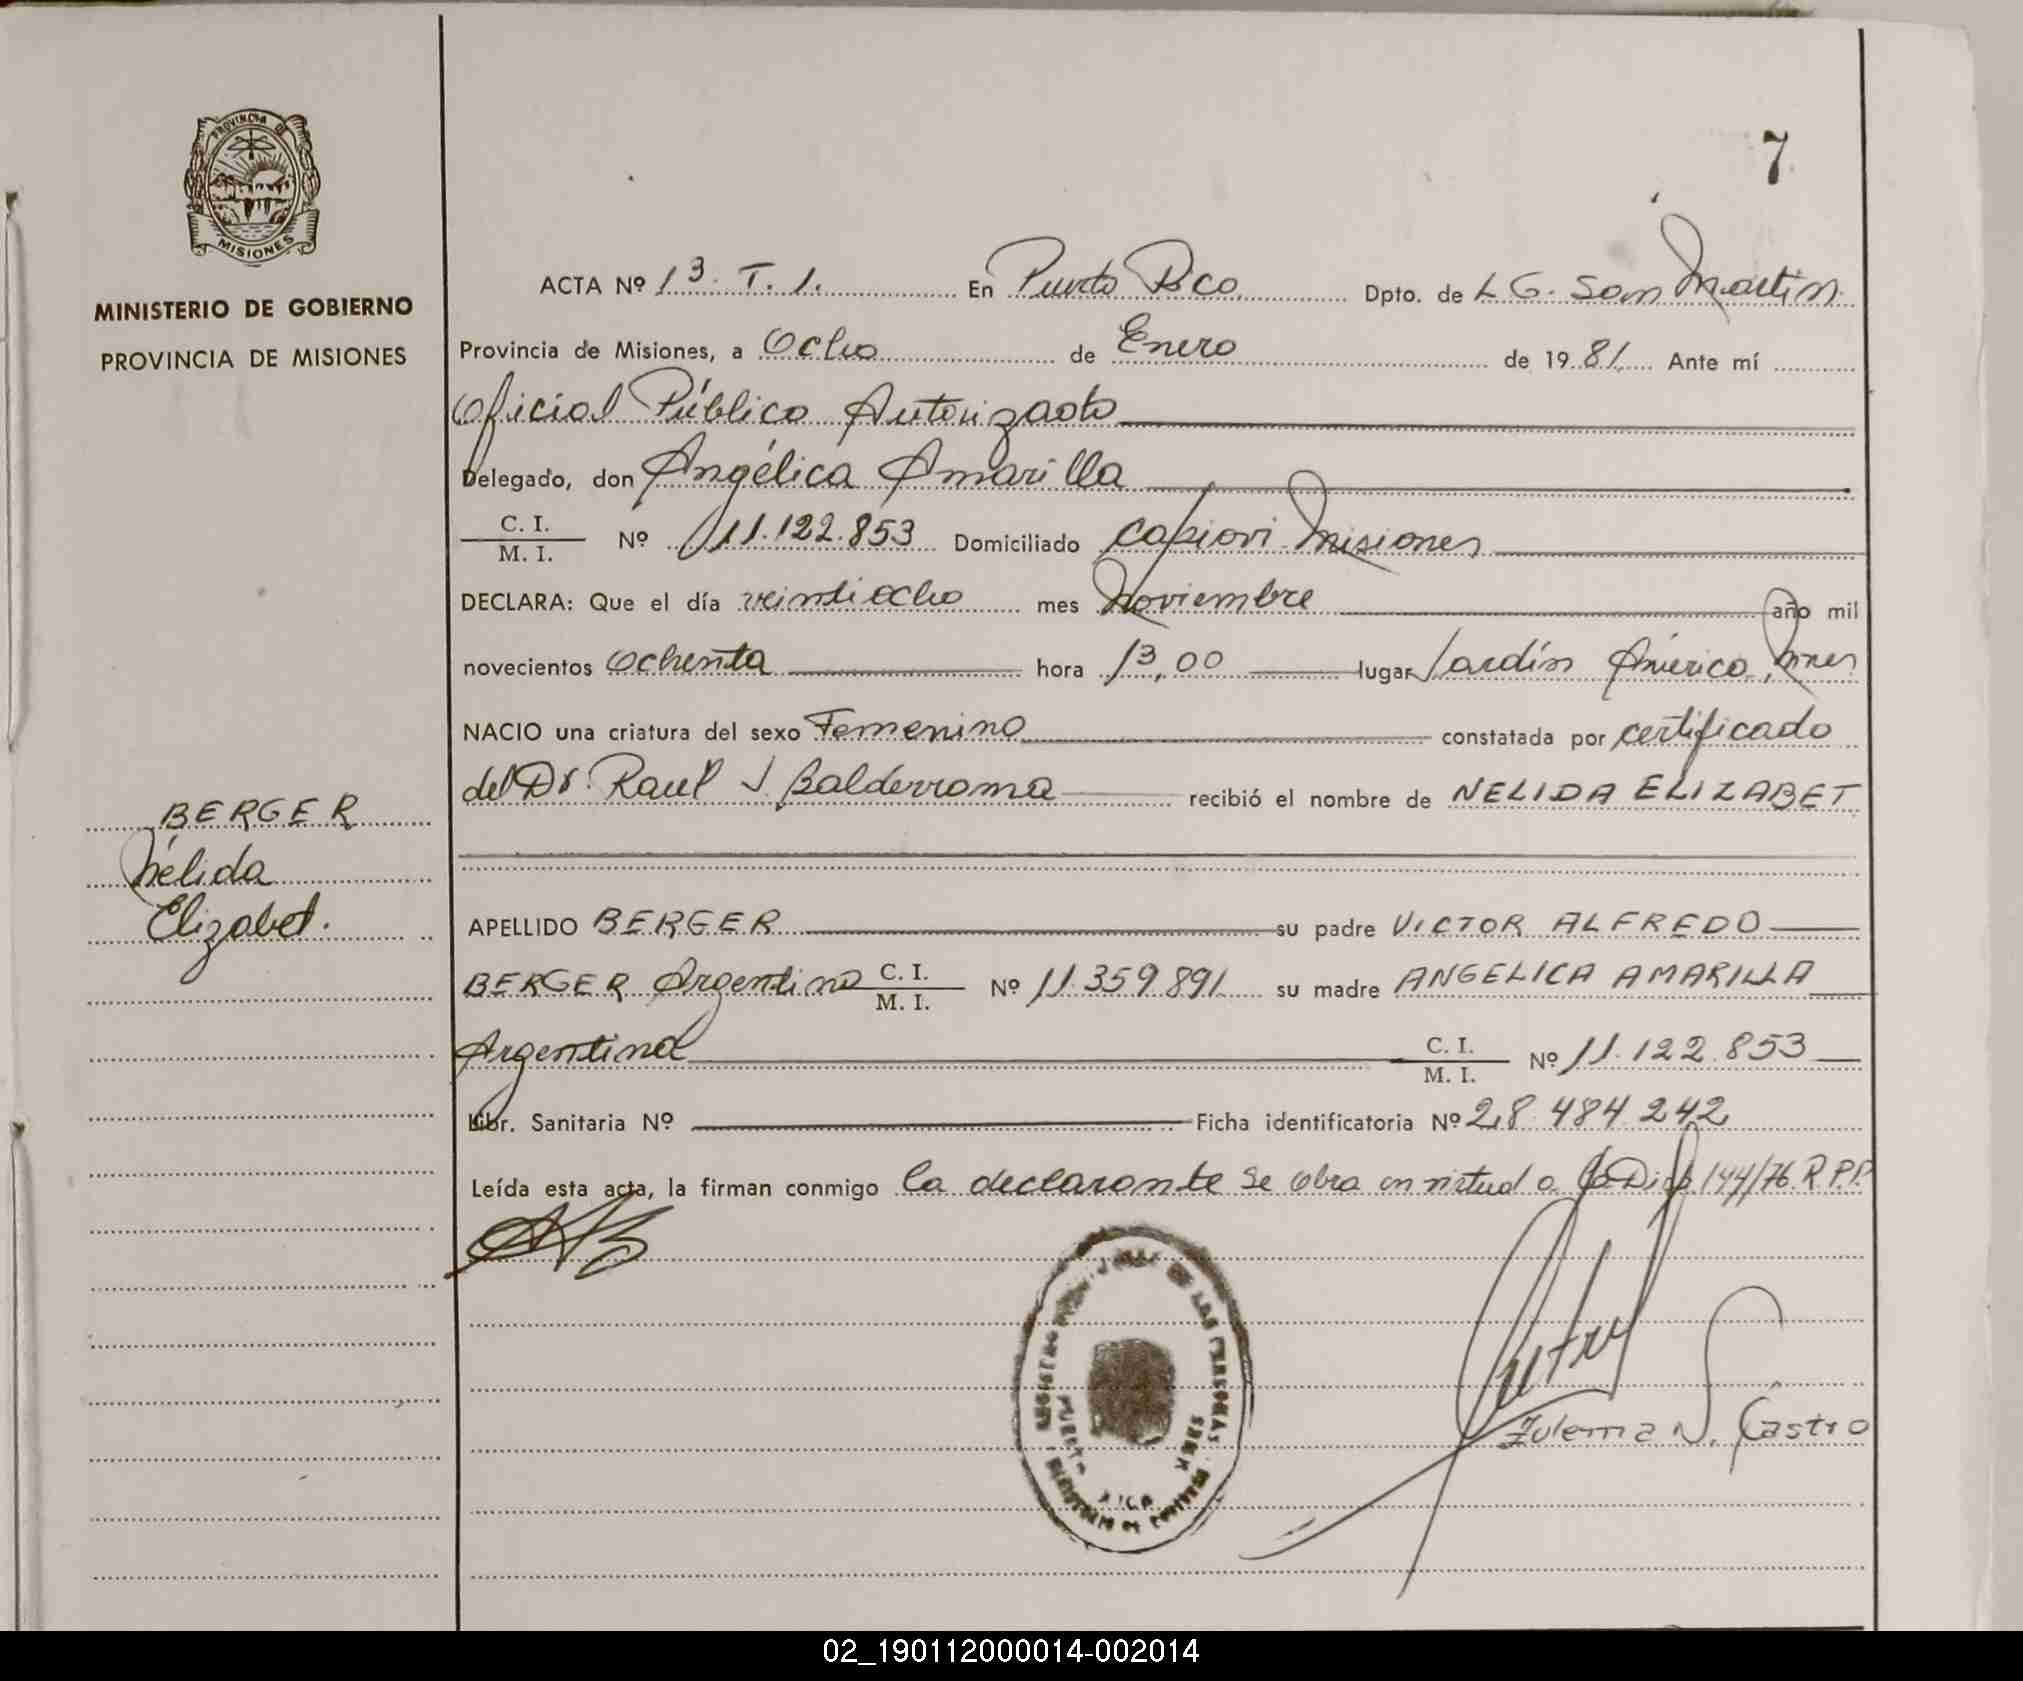 7
PROVINCIA DE
MISIONES
MINISTERIO DE GOBIERNO
PROVINCIA DE MISIONES
ACTA Nº 13. T. 1. En Puerto Rico Dpto. de L G. San Martín
Provincia de Misiones, a Ocho de Enero de 1981 Ante mí
Oficial Público Autorizado
Delegado, don Angélica Amarilla
C. I. / M. I. Nº 11.122.853 Domiciliado Capiovi Misiones
DECLARA: Que el día veintiocho mes Noviembre año mil
novecientos Ochenta hora 13,00 lugar Jardín América, Mnes
NACIO una criatura del sexo Femenino constatada por certificado
del Dr. Raul J. Balderrama recibió el nombre de NELIDA ELIZABET
BERGER
Nélida
Elizabet.
APELLIDO BERGER su padre VICTOR ALFREDO
BERGER Argentino C. I. / M. I. Nº 11.359.891 su madre ANGELICA AMARILLA
Argentina C. I. / M. I. Nº 11.122.853
Libr. Sanitaria Nº Ficha identificatoria Nº 28.484.242
Leída esta acta, la firman conmigo la declarante Se obra en virtud a la Disp. 144/76 R.P.P.
Zulema N. Castro
02_190112000014-002014